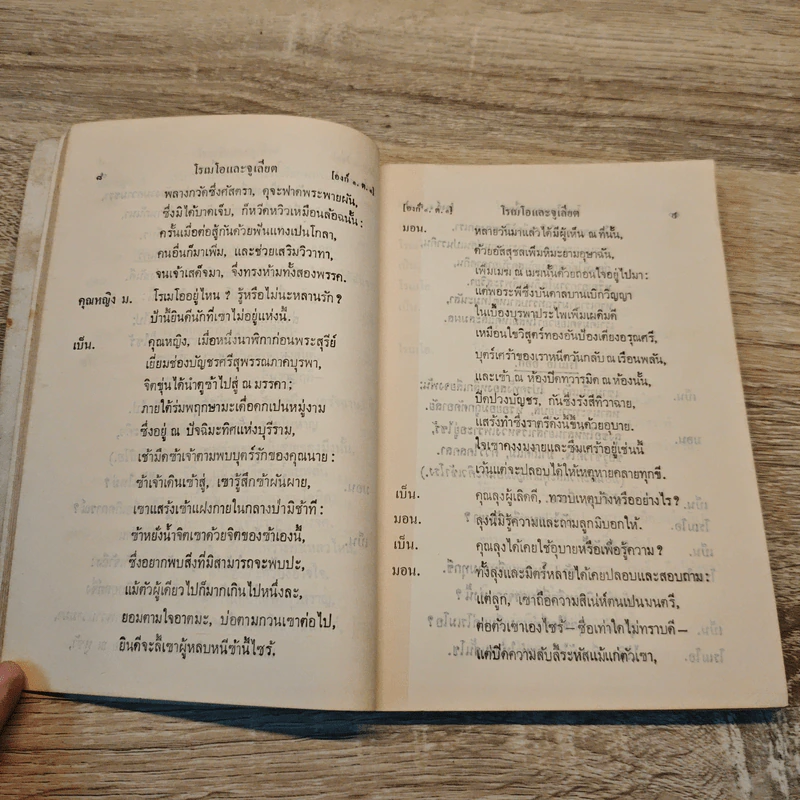 ๘ โรเมโอและจูเลียต [องก์ ๑, ต. ๑]
พลางกวัดซึ่งศัสตรา, ดุจะฟาดพระพายผัน,
ซึ่งมิได้บาดเจ็บ, ก็หวีดหวิวเหมือนล้อฉนั้น:
ครั้นเมื่อต่อสู้กันด้วยฟันแทงเปนโกลา,
คนอื่นก็มาเพิ่ม, และช่วยเสริมวิวาทา,
จนเจ้าเสด็จมา, จึ่งทรงห้ามทั้งสองพรรค.
คุณหญิง ม. โรเมโออยู่ไหน? รู้หรือไม่นะหลานรัก?
ป้านี้ยินดีนักที่เขาไม่อยู่แห่งนี้.
เบ็น. คุณหญิง, เมื่อหนึ่งนาฬิกาก่อนพระสุรีย์
เยี่ยมช่องบัญชรศรีสุพรรณภาคบุรพา,
จิตขุ่นได้นำตูข้าไปสู่ ณ มรรคา:
ภายใต้ร่มพฤกษามะเดื่อดกเปนหมู่งาม
ซึ่งอยู่ ณ ปัจฉิมะทิศแห่งบุรีราม,
เช้ามืดข้าเจ้าตามพบบุตร์รักของคุณนาย:
ข้าเจ้าเดินเข้าสู่, เขารู้สึกข้าผันผาย,
เขาแสร้งเข้าแฝงกายในกลางป่ามิช้าที:
ข้าหยั่งน้ำจิตเขาด้วยจิตของข้าเองนี้,
ซึ่งอยากพบสิ่งที่มิสามารถจะพบปะ,
แม้ตัวผู้เดียวไปก็มากเกินไปหนึ่งละ,
ยอมตามใจอาตมะ, บ่อตามกวนเขาต่อไป,
ยินดีจะลี้เขาผู้หลบหนีข้านี้ไซร้.
[องก์ ๑, ต. ๑] โรเมโอและจูเลียต ๙
มอน. หลายวันมาแล้วได้มีผู้เห็น ณ ที่นั้น,
ด้วยอัสสุชลเพิ่มหิมะยามอุษาฉัน,
เพิ่มเมฆ ณ เมฆนั้นด้วยถอนใจอยู่ไปมา:
แต่พอระพีซึ่งบันดาลบานเบิกวิญญา
ในเบื้องบุรพาประไพเพิ่มเผดิมดี
เหมือนไขวิสูตร์ทองอันป้องเตียงอรุณศรี,
บุตร์เศร้าของเราหนีตวันกลับ ณ เรือนพลัน,
และเข้า ณ ห้องปิดทวารมิด ณ ห้องนั้น,
ปิดปวงบัญชร, กันซึ่งรังสีทิวาฉาย,
แสร้งทำซึ่งราตรีดังนี้ขึ้นด้วยอุบาย.
ใจเขาคงงมงายและซึมเศร้าอยู่เช่นนี้
เว้นแต่จะปลอบได้ให้เหตุหายคลายทุกขี.
เบ็น. คุณลุงผู้เลิดดี, ทราบเหตุบ้างหรืออย่างไร?
มอน. ลุงนี่มิรู้ความและถามลูกมิบอกให้.
เบ็น. คุณลุงได้เคยใช้อุบายหรือเพื่อรู้ความ?
มอน. ทั้งลุงและมิตร์หลายได้เคยปลอบและสอบถาม:
แต่ลูก, เขาถือความสิเน่ห์ตนเปนมนตรี,
ต่อตัวเขาเองไซร้—ซื่อเท่าใดไม่ทราบดี—
แต่ปิดความลับลี้ระหัสแม้แก่ตัวเขา,